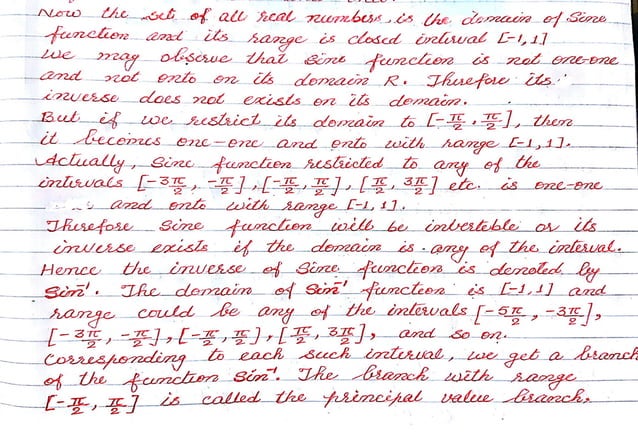 Now the set of all real numbers, is the domain of Sine
function and its range is closed interval [-1,1]
We may observe that Sine function is not one-one
and not onto on its domain R. Therefore its
inverse does not exists on its domain.
But if we restrict its domain to [-π/2, π/2], then
it becomes one-one and onto with range [-1,1].
Actually, Sine function restricted to any of the
intervals [-3π/2, -π/2], [-π/2, π/2], [π/2, 3π/2] etc. is one-one
and onto with range [-1,1].
Therefore Sine function will be invertible or its
inverse exists if the domain is any of the interval.
Hence the inverse of Sine function is denoted by
Sin⁻¹. The domain of Sin⁻¹ function is [-1,1] and
range could be any of the intervals [-5π/2, -3π/2],
[-3π/2, -π/2], [-π/2, π/2], [π/2, 3π/2], and so on.
Corresponding to each such interval, we get a branch
of the function Sin⁻¹. The branch with range
[-π/2, π/2] is called the principal value branch,